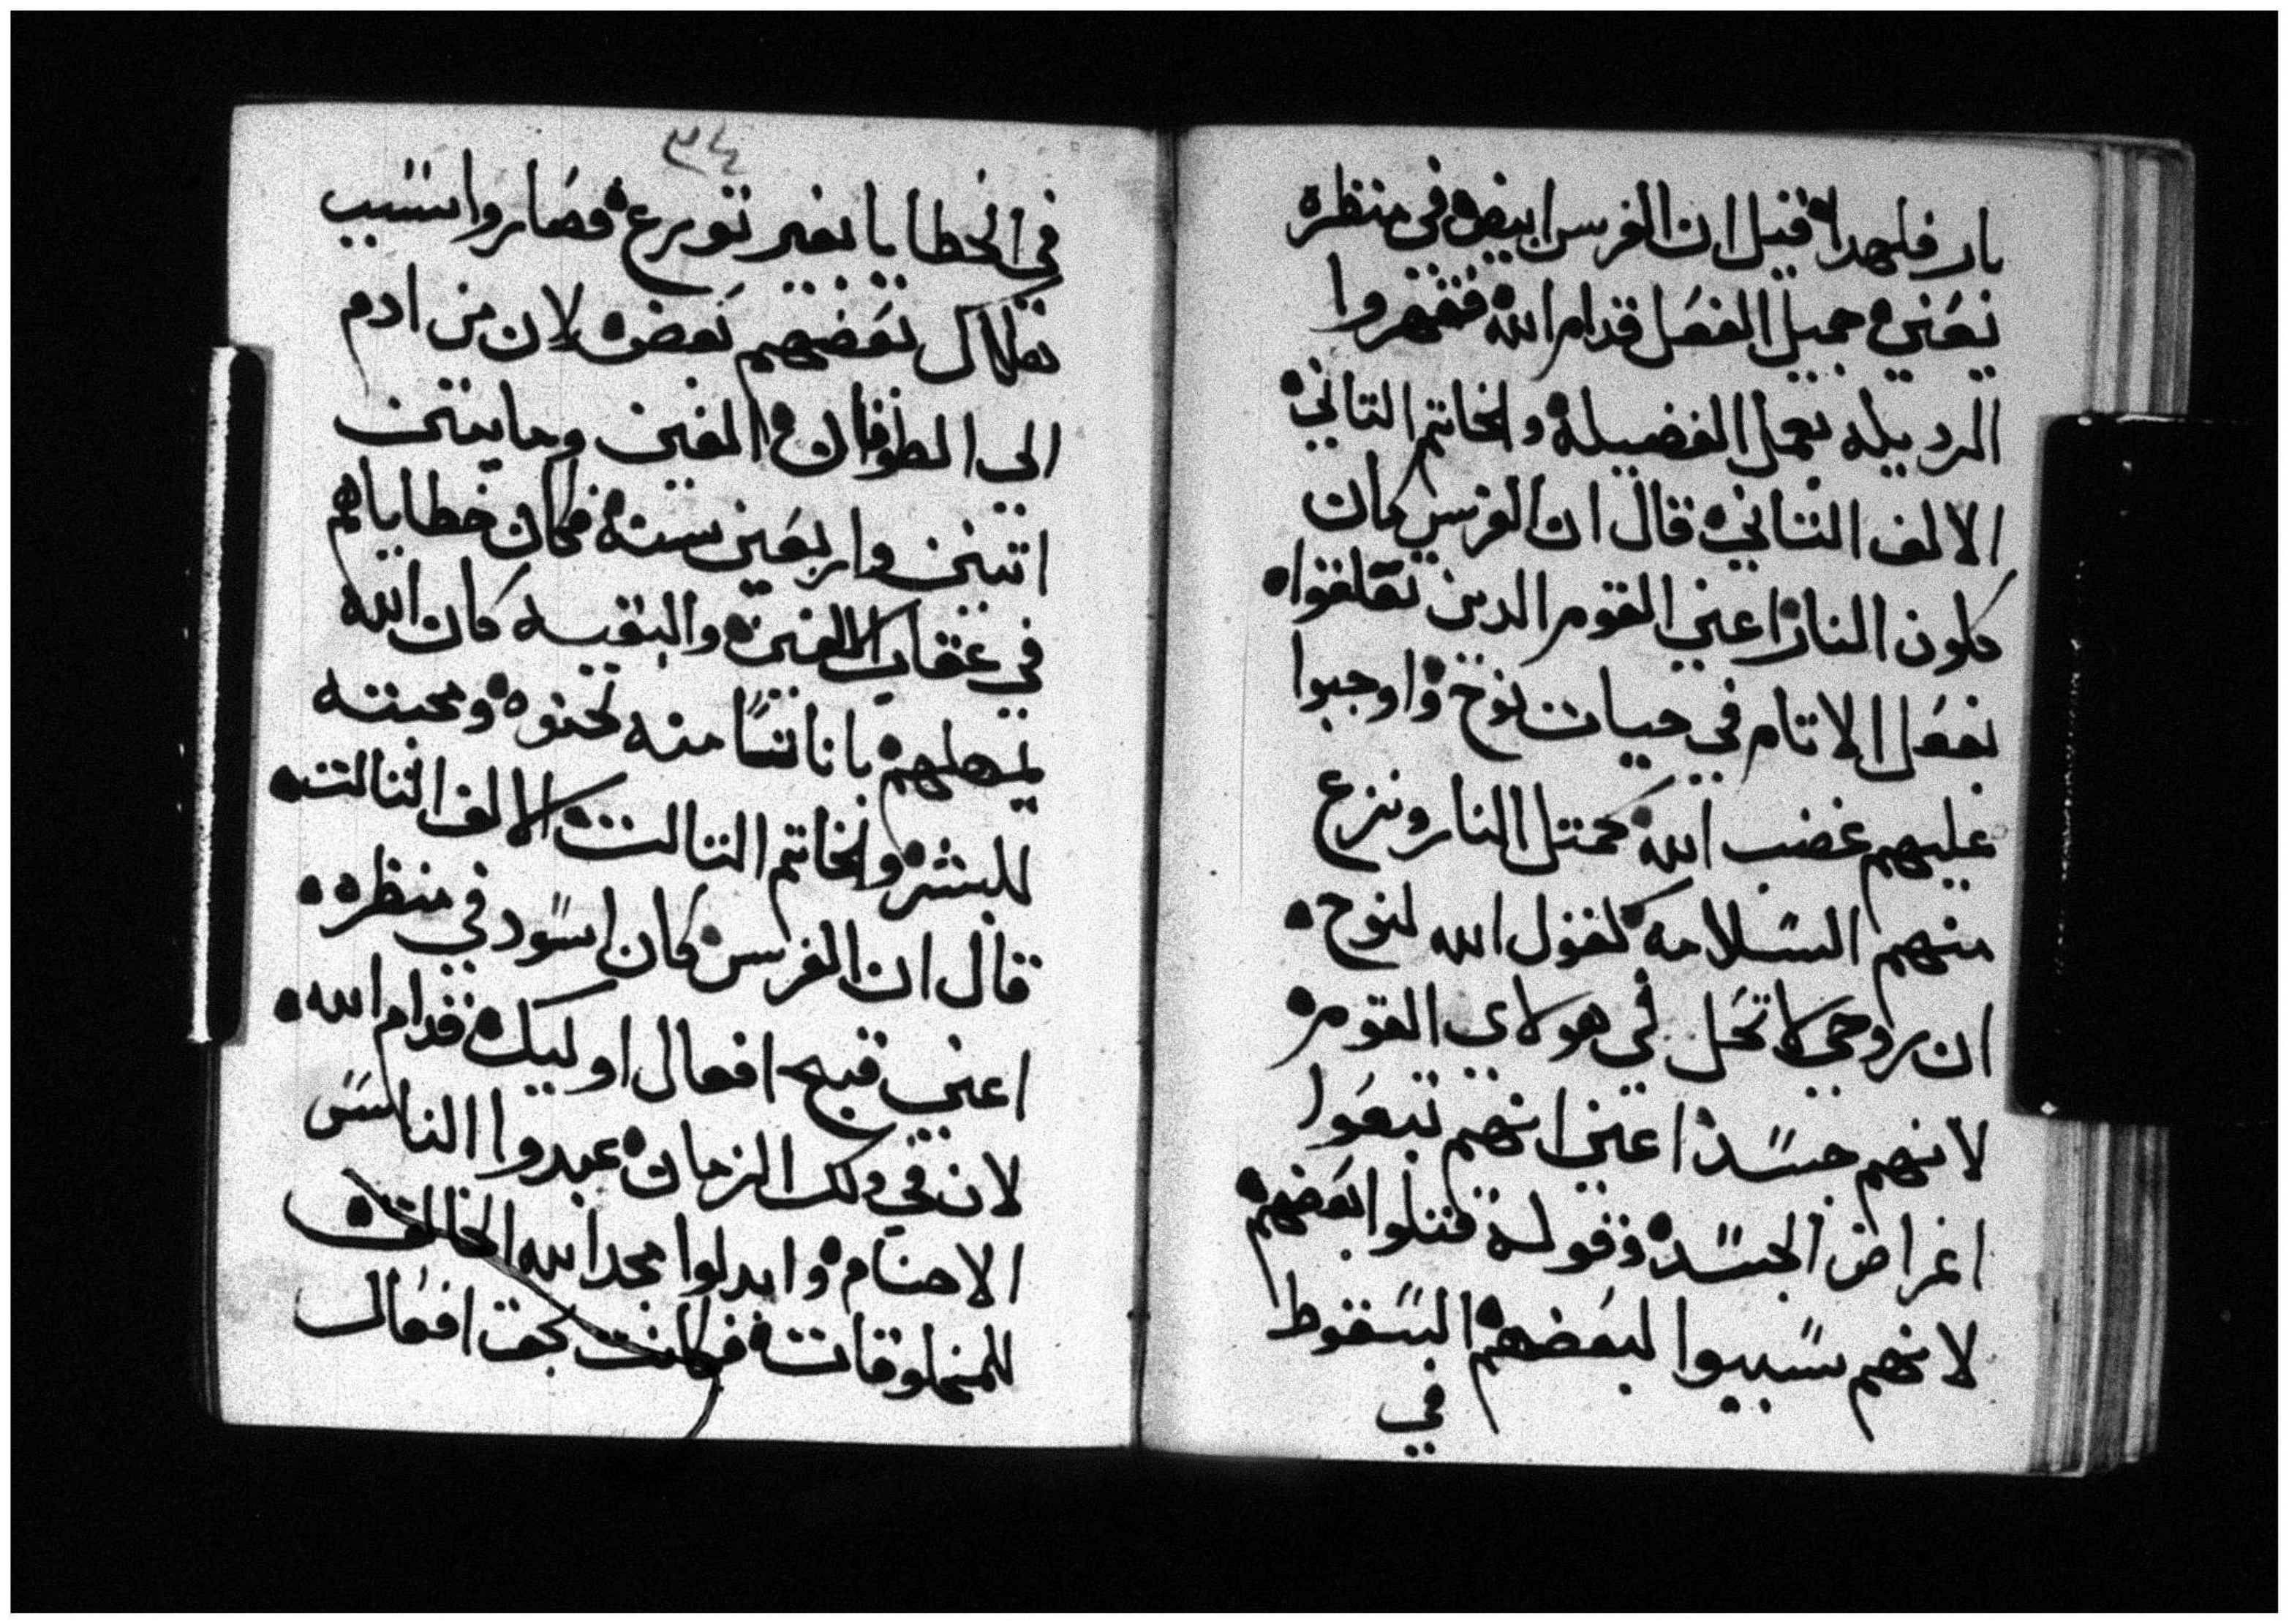 بار فلهدا قيل ان الفرس ابيض في منظره
يعني جميل الفعل قدام الله فقهروا
الرديله بعمل الفضيله والخاتم التاني
الالف التاني قال ان الفرس كان
كلون النار اعني القوم الدين تقلقوا
بفعل الاتام في حيات نوح واوجبوا
عليهم غضب الله كمتل النار ونزع
منهم السلامه كقول الله لنوح
ان روحي لا تحل في هولاي القوم
لانهم جسد اعني انهم تبعوا
اغراض الجسد وقوله قتلوا بعضهم
لانهم سببوا لبعضهم السقوط
في
٣٤
في الخطايا بغير تورع فصاروا سبب
هلاك بعضهم بعض لان من ادم
الى الطوفان الفين ومايتين
اتنين واربعين سنه فكان خطاياهم
في عقاب الالفين والبقيه كان الله
يمهلهم باناتا منه لحنوه ومحبته
للبشر والخاتم التالت الالف التالت
قال ان الفرس كان اسود في منظره
اعني قبح افعال اوليك قدام الله
لان في دلك الزمان عبدوا الناس
الاصنام وابدلوا مجد الله الخالق
للمخلوقات فكانت بحق افعال